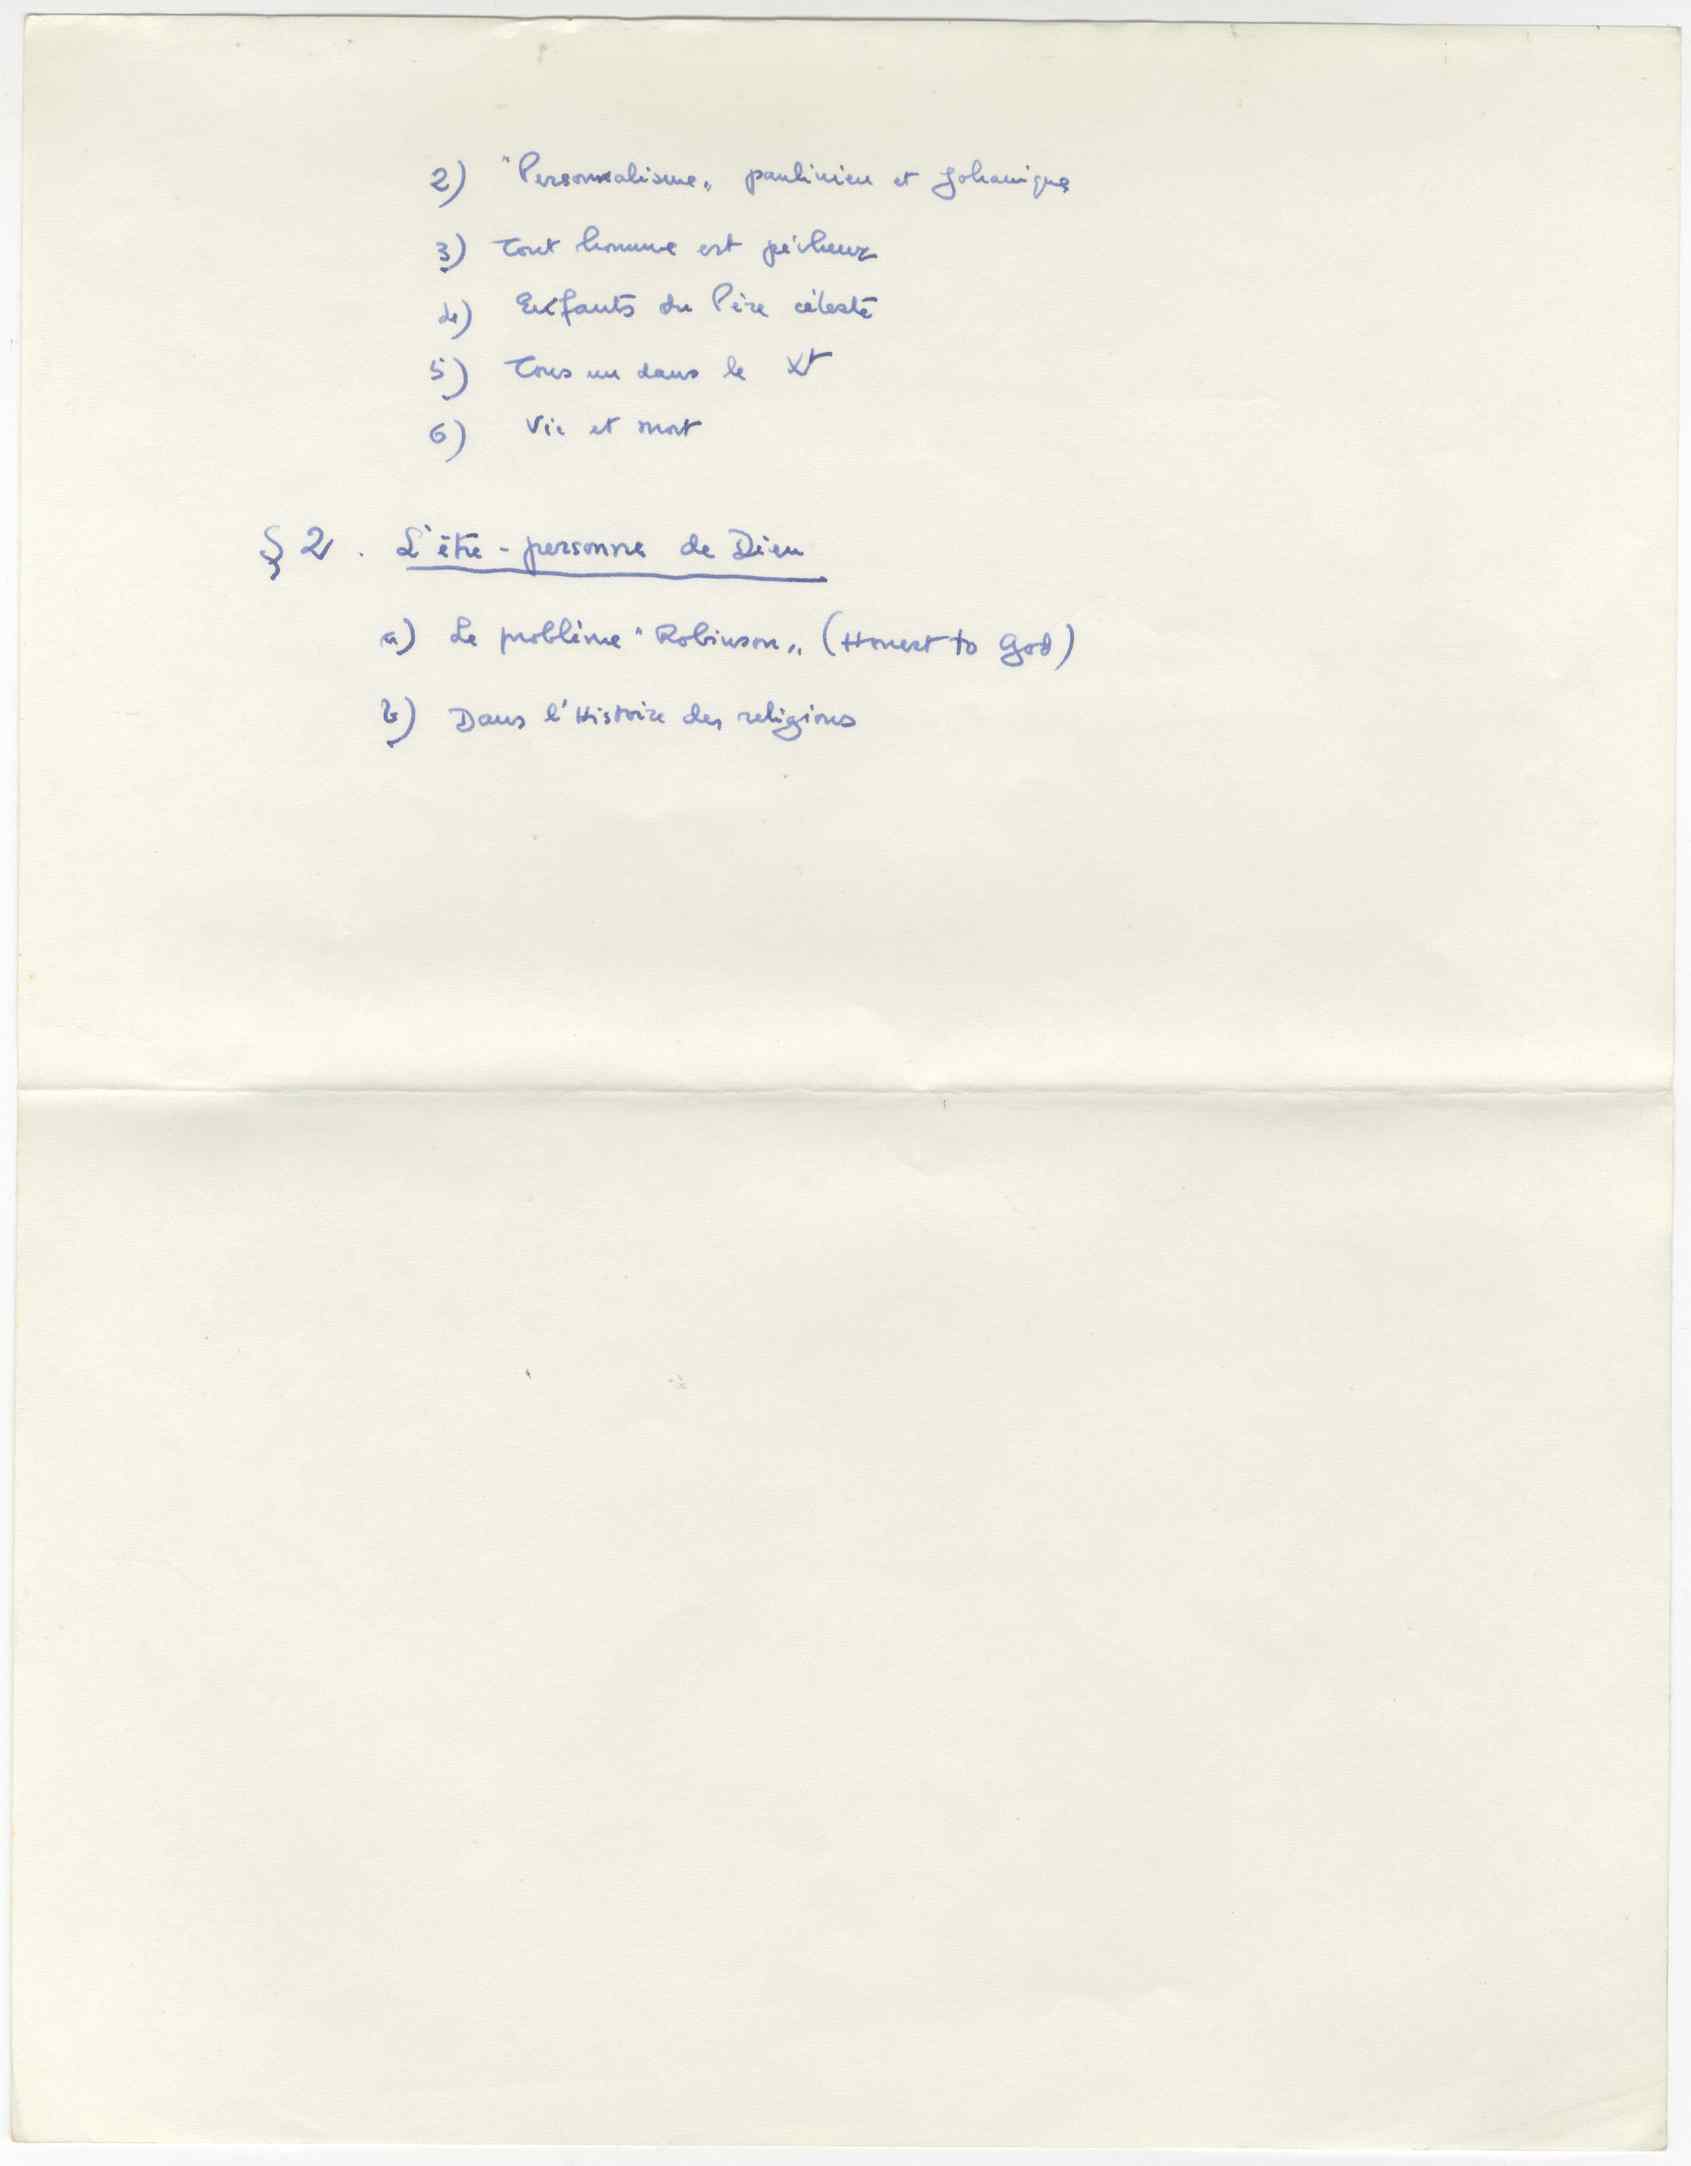 2) "Personnalisme„ paulinien et Johanique
3) Tout homme est pécheur
4) Enfants du Père céleste
5) Tous un dans le Xt
6) Vie et mort
§ 2. L'être-personne de Dieu
a) Le problème "Robinson„ (Honest to God)
b) Dans l'Histoire des religions